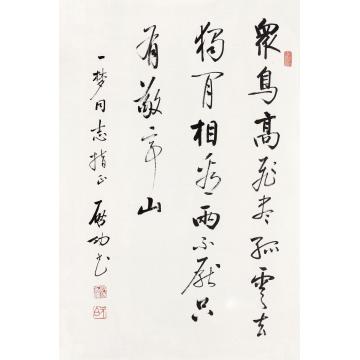 眾鳥高飛盡孤雲去
獨閒相看兩不厭只
有敬亭山
一梦同志指正 啟功書